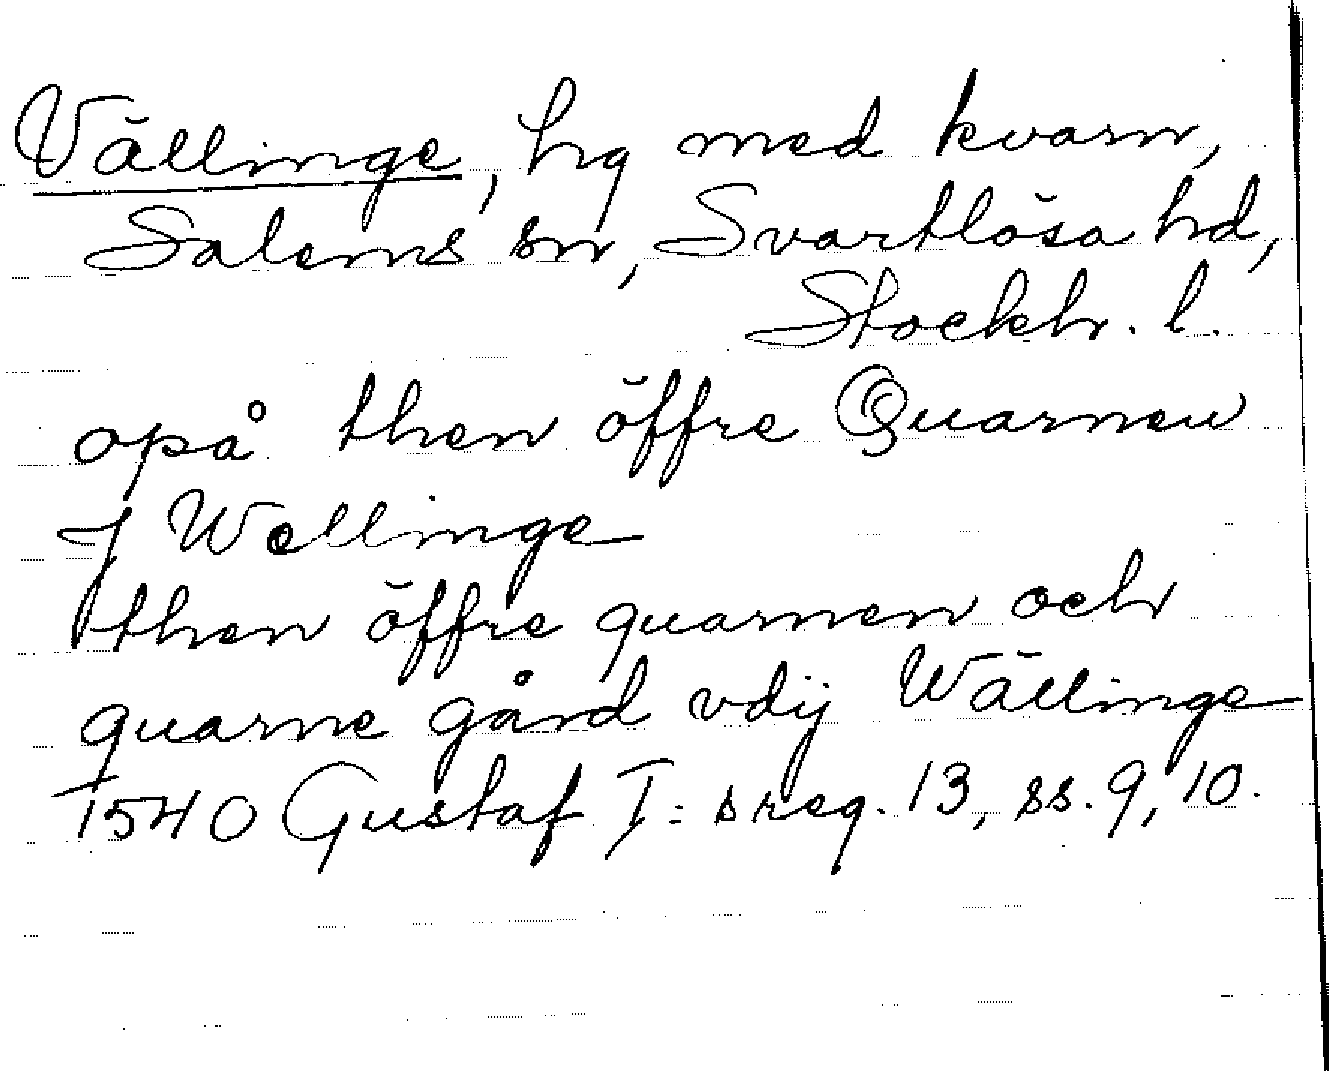 Vällinge, hg med kvarn,
Salems sn, Svartlösa hd,
Stockh. l.
opå then öffre Quarnen
J Wellinge
then öffre quarnen och
quarne gård vdij Wällinge
1540 Gustaf I: s reg. 13, ss. 9, 10.